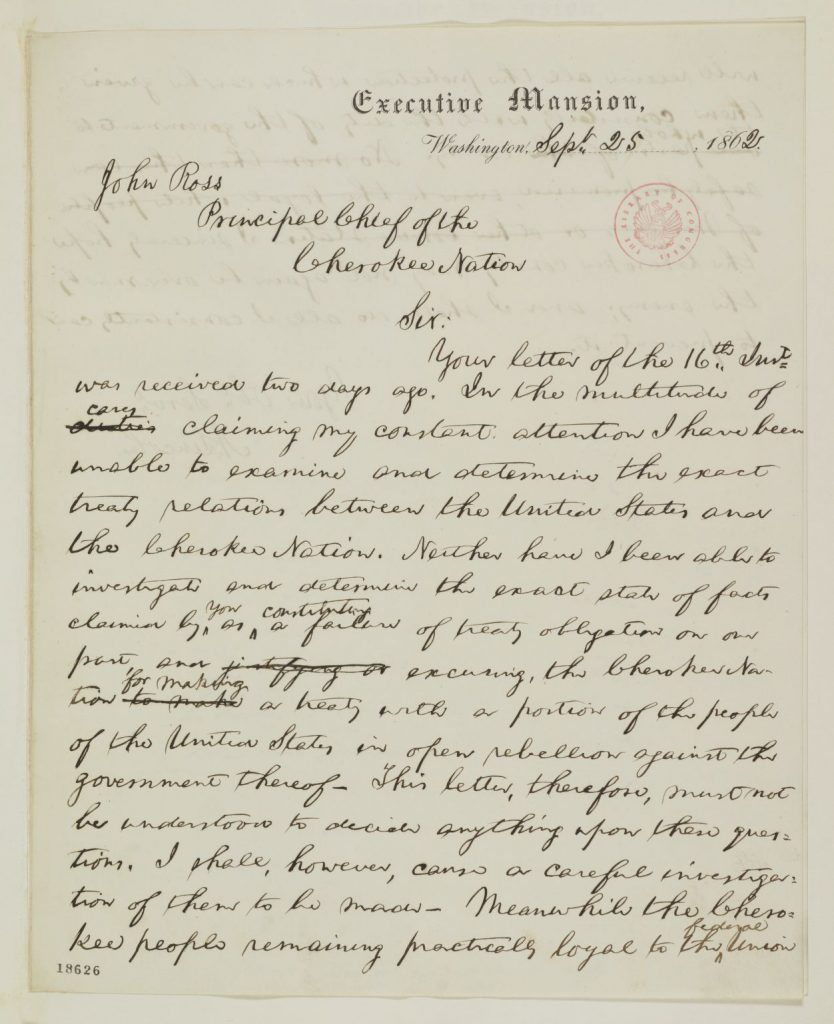 Executive Mansion,
Washington, Sept. 25, 1862.
John Ross
Principal Chief of the
Cherokee Nation
Sir:
Your letter of the 16th. Inst.
THE LIBRARY OF CONGRESS
was received two days ago. In the multitude of
cares
duties claiming my constant attention I have been
unable to examine and determine the exact
treaty relations between the United States and
the Cherokee Nation. Neither have I been able to
investigate and determine the exact state of facts
you constituting
claimed by, as a failure of treaty obligation on our
part, and justifying or excusing, the Cherokee Na-
for making
tion to make a treaty with a portion of the people
of the United States in open rebellion against the
government thereof- This letter, therefore, must not
be understood to decide anything upon these ques=
tions. I shall, however, cause a careful investiga=
tion of them to be made- Meanwhile the Chero=
federal
kee people remaining practically loyal to the Union
18626